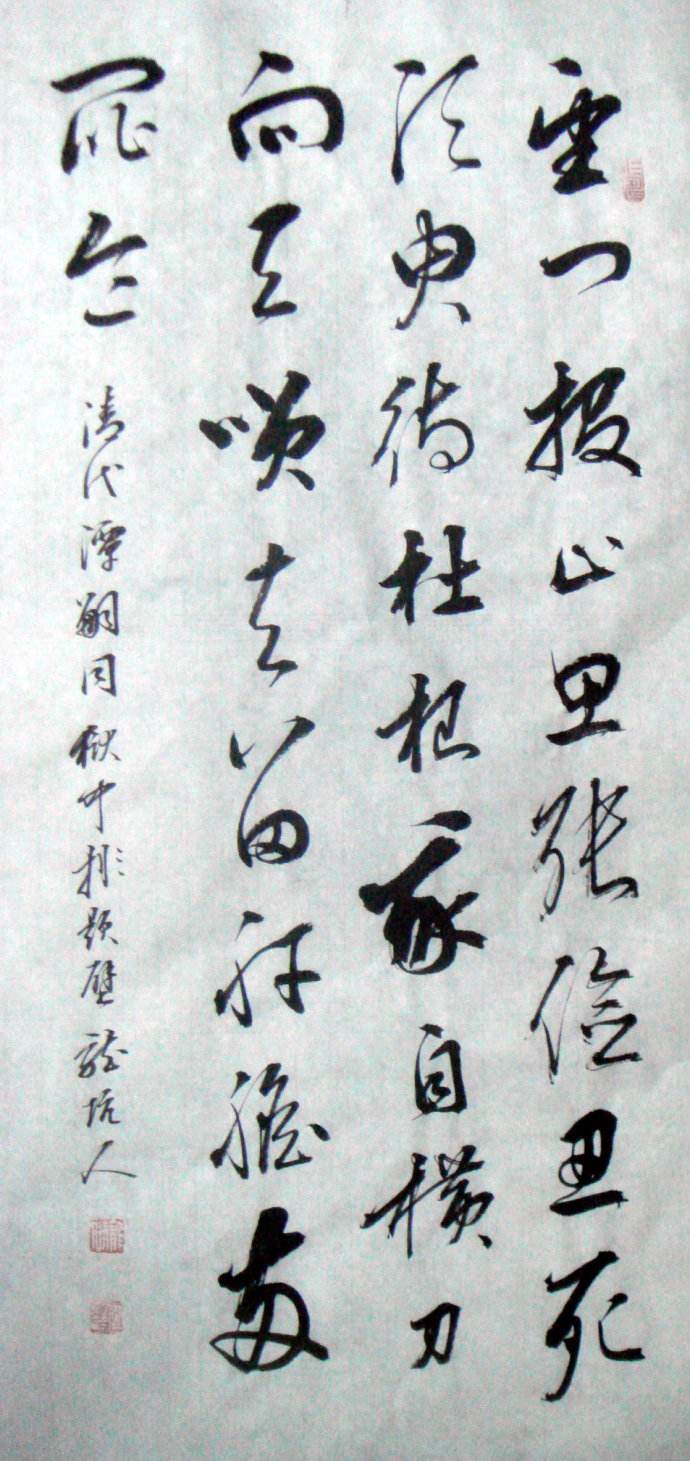 望门投止思张俭忍死
须臾待杜根我自横刀
向天咲去留肝胆两
昆仑
清代潭嗣同狱中题壁龙坑人